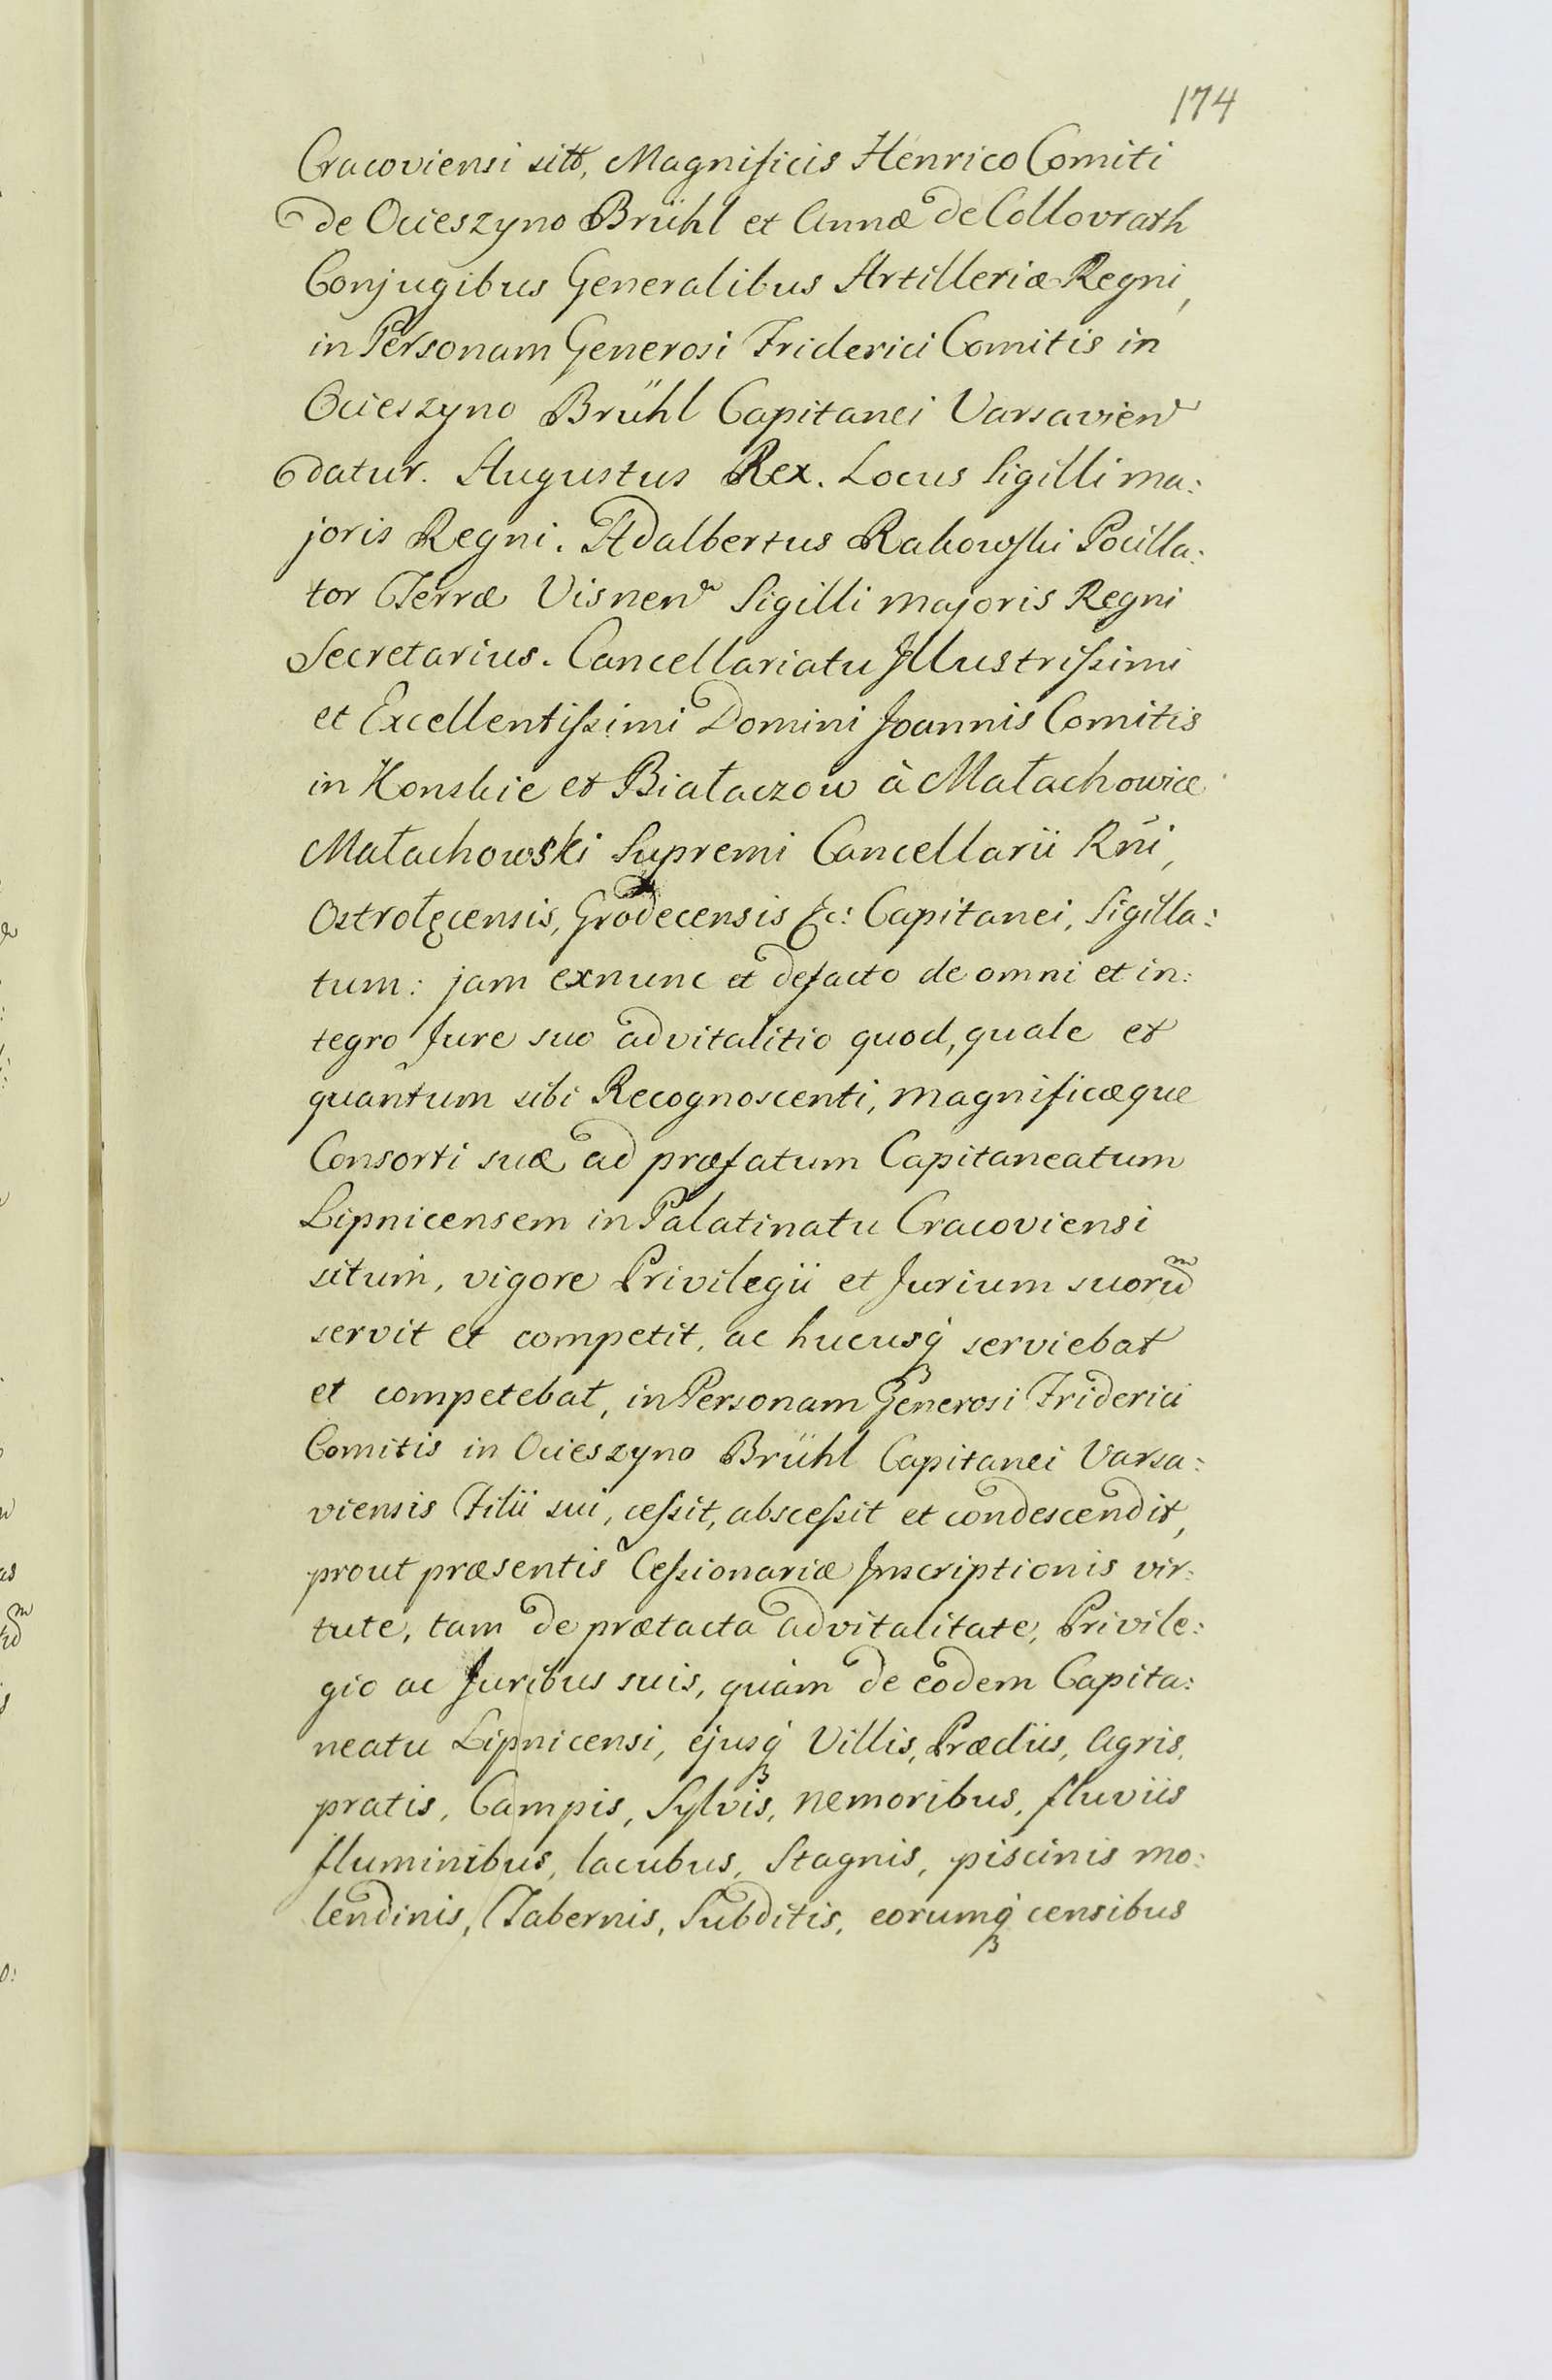 174
Cracoviensi sitô, Magnificis Henrico Comiti
de Ocieszyno Brühl et Annæ de Collovrath
Conjugibus Generalibus Artilleriæ Regni,
in Personam Generosi Friderici Comitis in
Ocieszyno Brühl Capitanei Varsavien
datur. Augustus Rex. Locus Sigilli ma:
joris Regni. Adalbertus Rakowski Pocilla:
tor Terræ Visnen Sigilli majoris Regni
Secretarius. Cancellariatu Jllustrissimi
et Excellentissimi Domini Joannis Comitis
in Konskie et Białaczow à Małachowice
Małachowski Supremi Cancellarii Rni,
Ostrołęcensis, Grodecensis &c: Capitanei, Sigilla:
tum: jam exnunc et defacto de omni et in:
tegro Jure suo advitalitio quod, quale et
quantum sibi Recognoscenti, magnificæque
Consorti suæ ad præfatum Capitaneatum
Lipnicensem in Palatinatu Cracoviensi
situm, vigore Privilegii et Jurium suorũ
servit et competit, ac hucusq́ serviebat
et competebat, in Personam Generosi Friderici
Comitis in Ocieszyno Brühl Capitanei Varsa:
viensis Filii sui, cessit, abscessit et condescendit,
prout præsentis Cessionariæ Jnscriptionis vir:
tute, tam de prætacta advitalitate, Privile:
gio ac Juribus suis, quàm de eodem Capita:
neatu Lipnicensi, ejusq́ Villis, Prædiis, Agris,
pratis, Campis, Sylvis, nemoribus, fluviis
fluminibus, lacubus, Stagnis, piscinis mo:
lendinis, Tabernis, Subditis, eorumq́ censibus